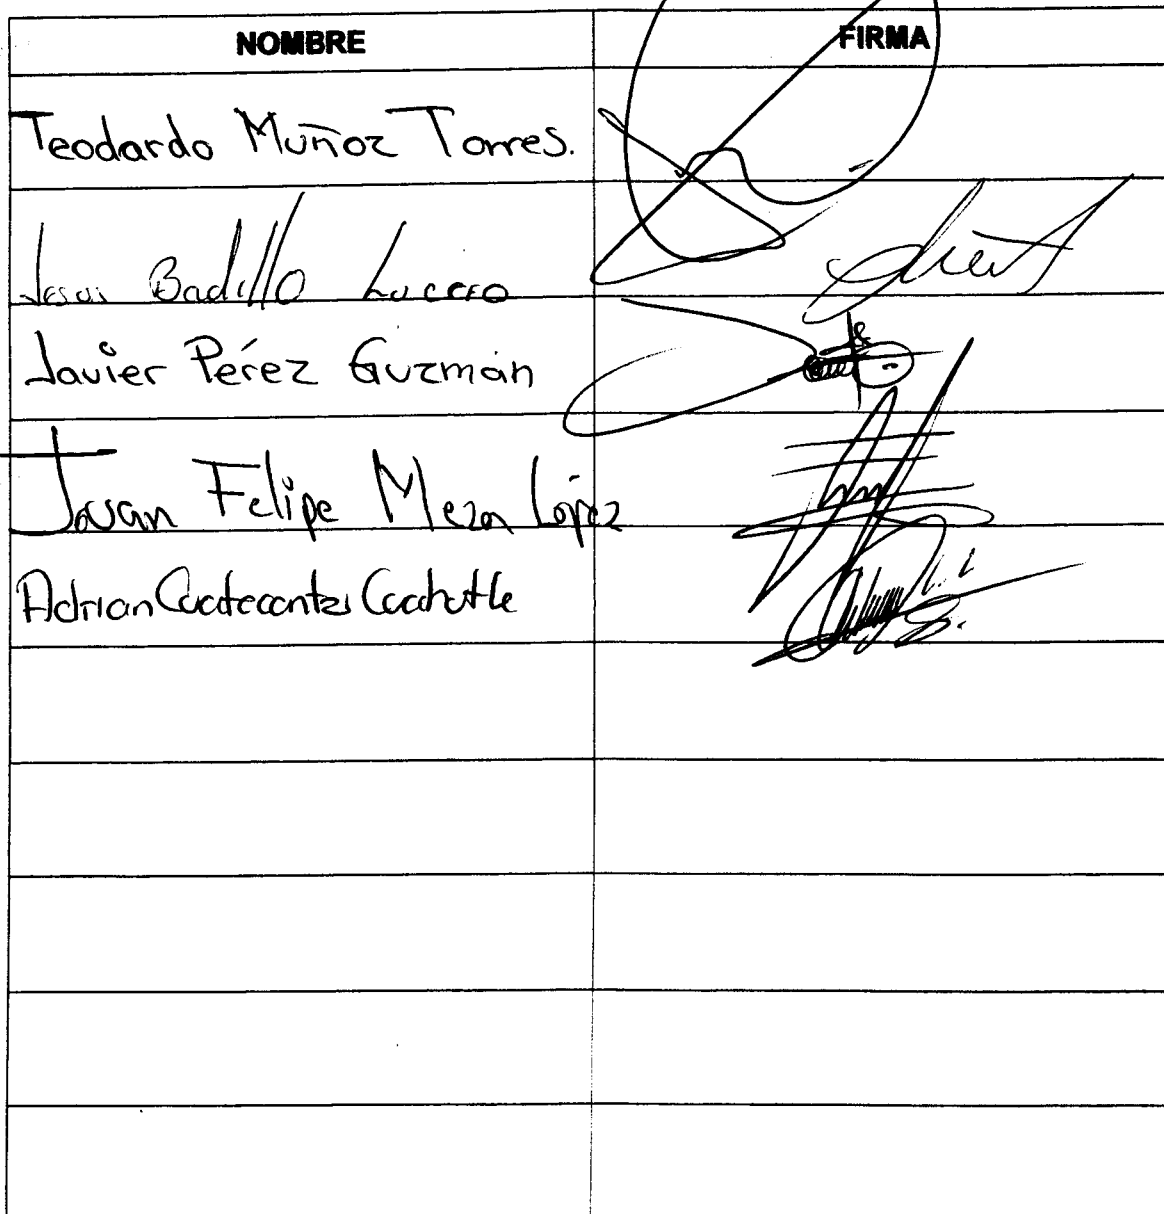 NOMBRE FIRMA
Teodardo Muñoz Torres.
Jesus Badillo Lucero
Javier Pérez Guzmán
Juan Felipe Meza López
Adrian